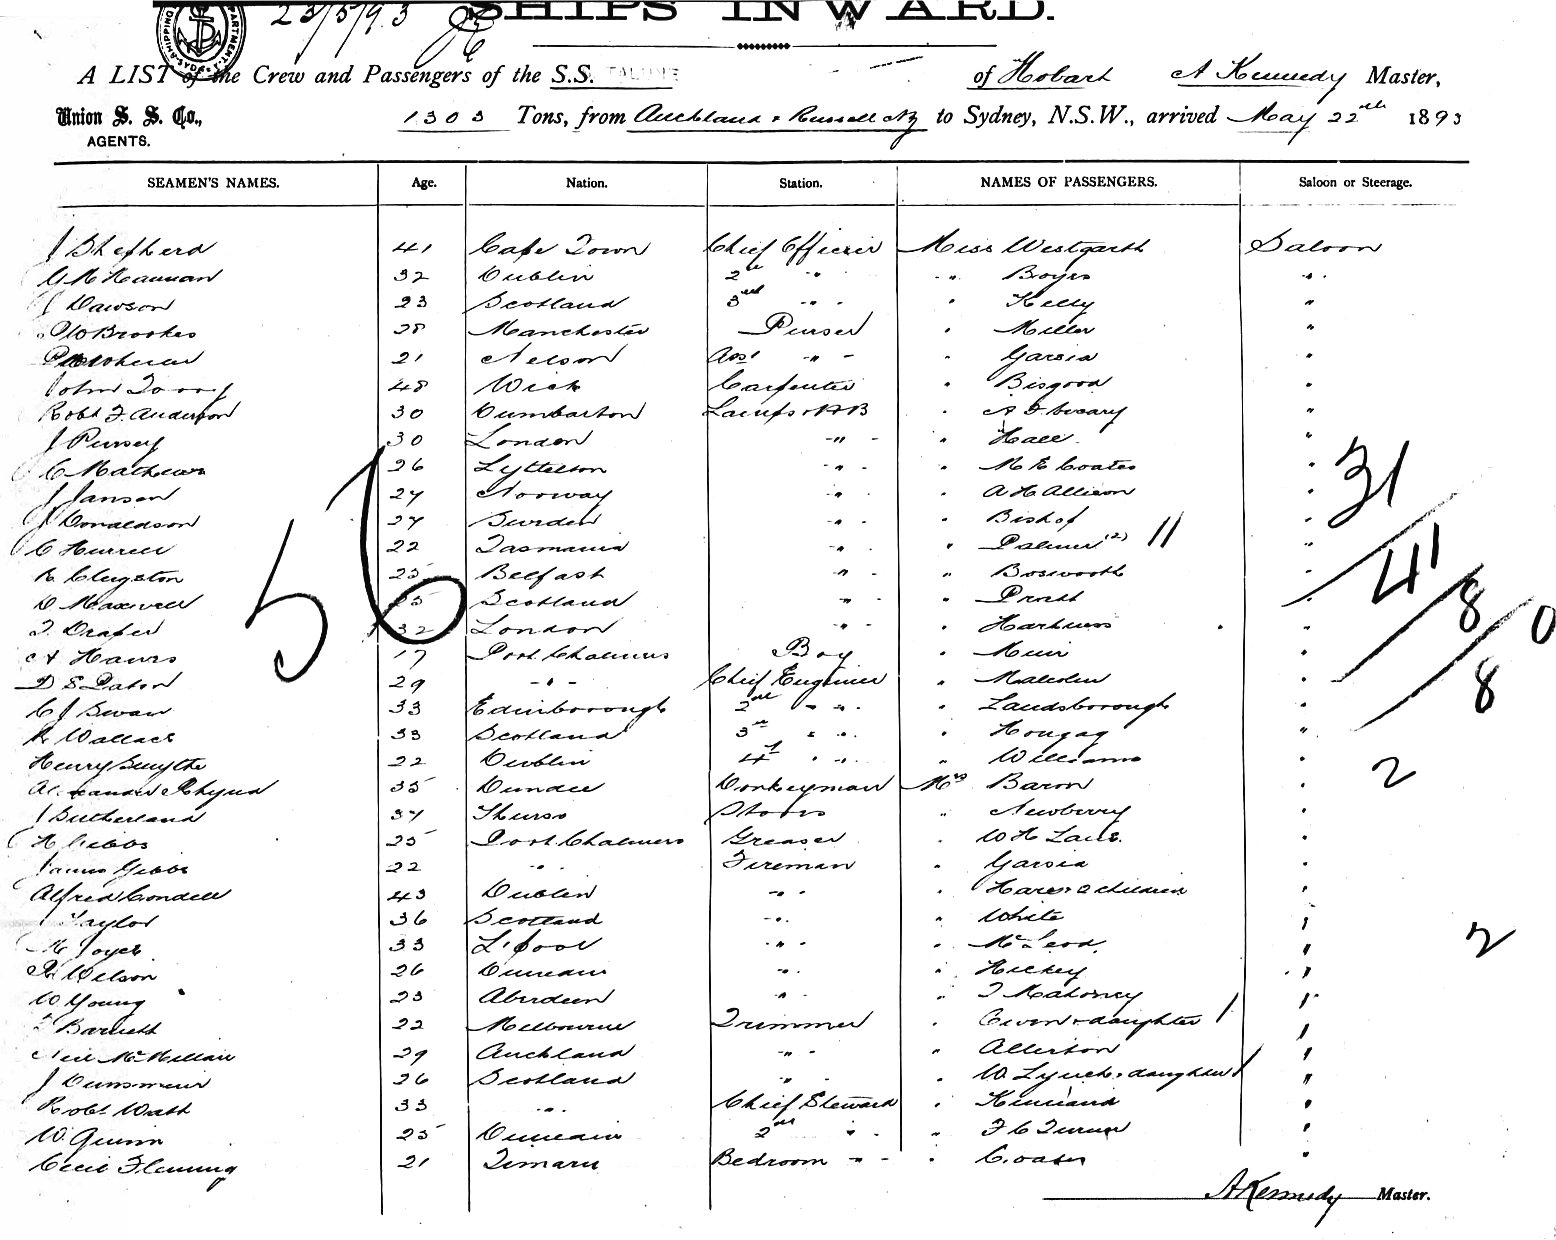 23/5/93
SHIPS INWARD.
A LIST of the Crew and Passengers of the S.S. TALUNE of Hobart A Kennedy Master,
Union S. S. Co., 1303 Tons, from Auckland & Russell NZ to Sydney, N.S.W., arrived May 22nd 1893
AGENTS.
SEAMEN'S NAMES. Age. Nation. Station. NAMES OF PASSENGERS. Saloon or Steerage.
J Shepherd 41 Cape Town Chief Officer Miss Westgarth Saloon
32 Dublin 2nd " " Boyes "
J Dawson 23 Scotland 3rd " " Kelly "
Brookes 28 Manchester Purser " Miller "
21 Nelson Asst " " Garsia "
John 48 Wick Carpenter " Bisgood "
Robt F. Anderson 30 Dumbarton Lamps & AB " "
J Pursey 30 London " " Hall "
C Mathews 26 Lyttelton " " M E Coates "
J Janson 24 Norway " " A H Allison "
J Donaldson 24 Sweden " " Bishop "
C Hurrell 22 Tasmania " " Palmer (2) 11 "
R Clugston 25 Belfast " " Bosworth "
D Maxwell 25 Scotland " " "
T Draper 32 London " " "
A Hanrs 17 Port Chalmers Boy " Muir "
D S Paton 29 " Chief Engineer " Malcolm "
C J Swan 33 Edinborough 2nd " " Landsborough "
R Wallace 33 Scotland 3rd " " "
Henry Smythe 22 Dublin 4th " " Williams "
Alexander Rhynd 35 Dundee Donkeyman Mrs Baron "
J Sutherland 34 Thurso Stores " Newberry "
H Gibbs 25 Port Chalmers Greaser " W H "
James Gibbs 22 " Fireman " Garsia "
Alfred Condell 43 Dublin " " Hare & 2 children "
Taylor 36 Scotland " " White "
M Joyce 33 L'pool " " McLeod "
R Wilson 26 Dunedin " " Hickey "
W Young 23 Aberdeen " " T Mahoney "
Barnett 22 Melbourne Trimmer " Owen & daughter 1 "
Neil McMillan 29 Auckland " " Allerton "
J Dunsmuir 26 Scotland " " W Lynch & daughter 1 "
Robt Watt 33 " Chief Steward " "
W. Quinn 25 Dunedin 2nd " " F C Turner "
Cecil Fleming 21 Timaru Bedroom " " "
56
31
41
8
0
8
2
2
A Kennedy Master.